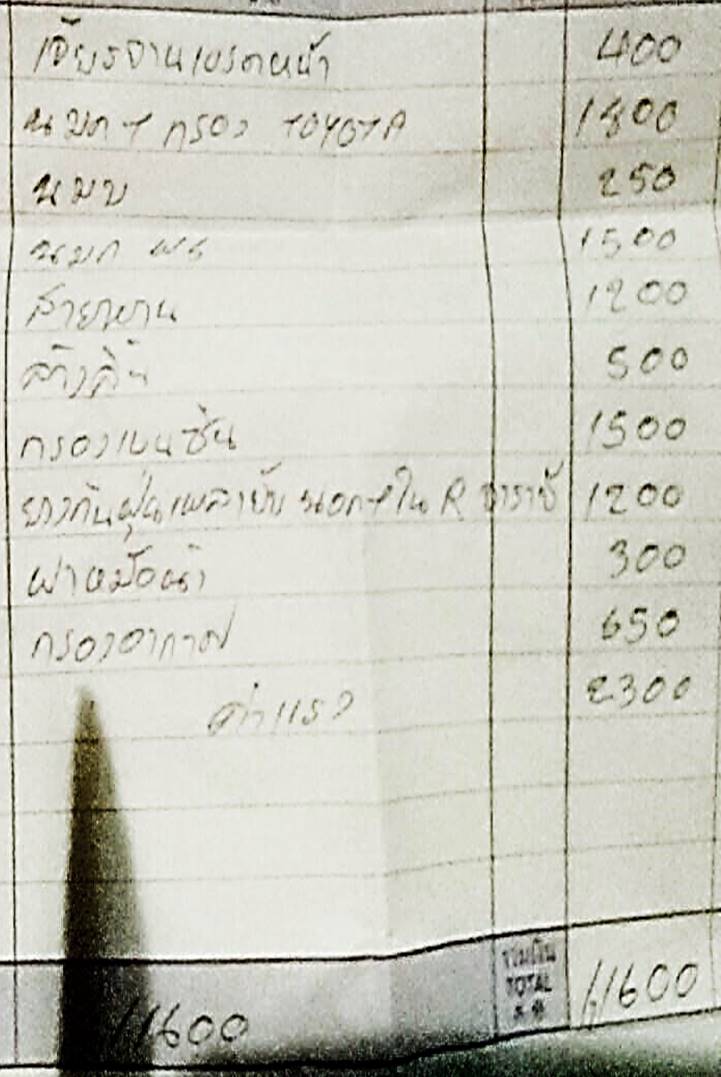 เจียรจานเบรคหน้า 400
นมค + กรอง TOYOTA 1800
นมบ 250
นมก พร 1500
สายพาน 1200
ล้างลิ้น 500
กรองเบนซิน 1500
ยางกันฝุ่นเพลาขับ นอก+ใน R 1200
ฝาหม้อน้ำ 300
กรองอากาศ 650
ค่าแรง 2300
รวมเงิน
TOTAL
11600 11600